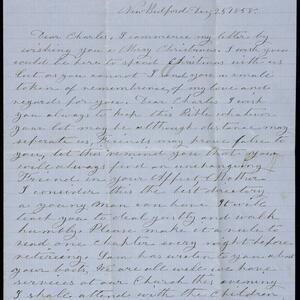 New Bedford Dec 25 1858.
Dear Charles, I commence my letter by
wishing you a Merry Christmas. I wish you
could be here to spend Christmas with us
but as you cannot I send you a small
token of remembrence, of my love and
regards for you. Dear Charles I wish
you always to keep this Bible whatever
your lot may be although distance may
separate us, Friends may prove false to
you, let this remind you that you
will always find an unchanging
Friend in your Affect. Mother
I consider this the best directory
a young Man can have. It will
teach you to deal justly and walk
humbly. Please make it a rule to
read one chapter every night before
retireing. has written to you about
your boots, We are all well, we have
services at our Church this evening
I shall attend with the Children